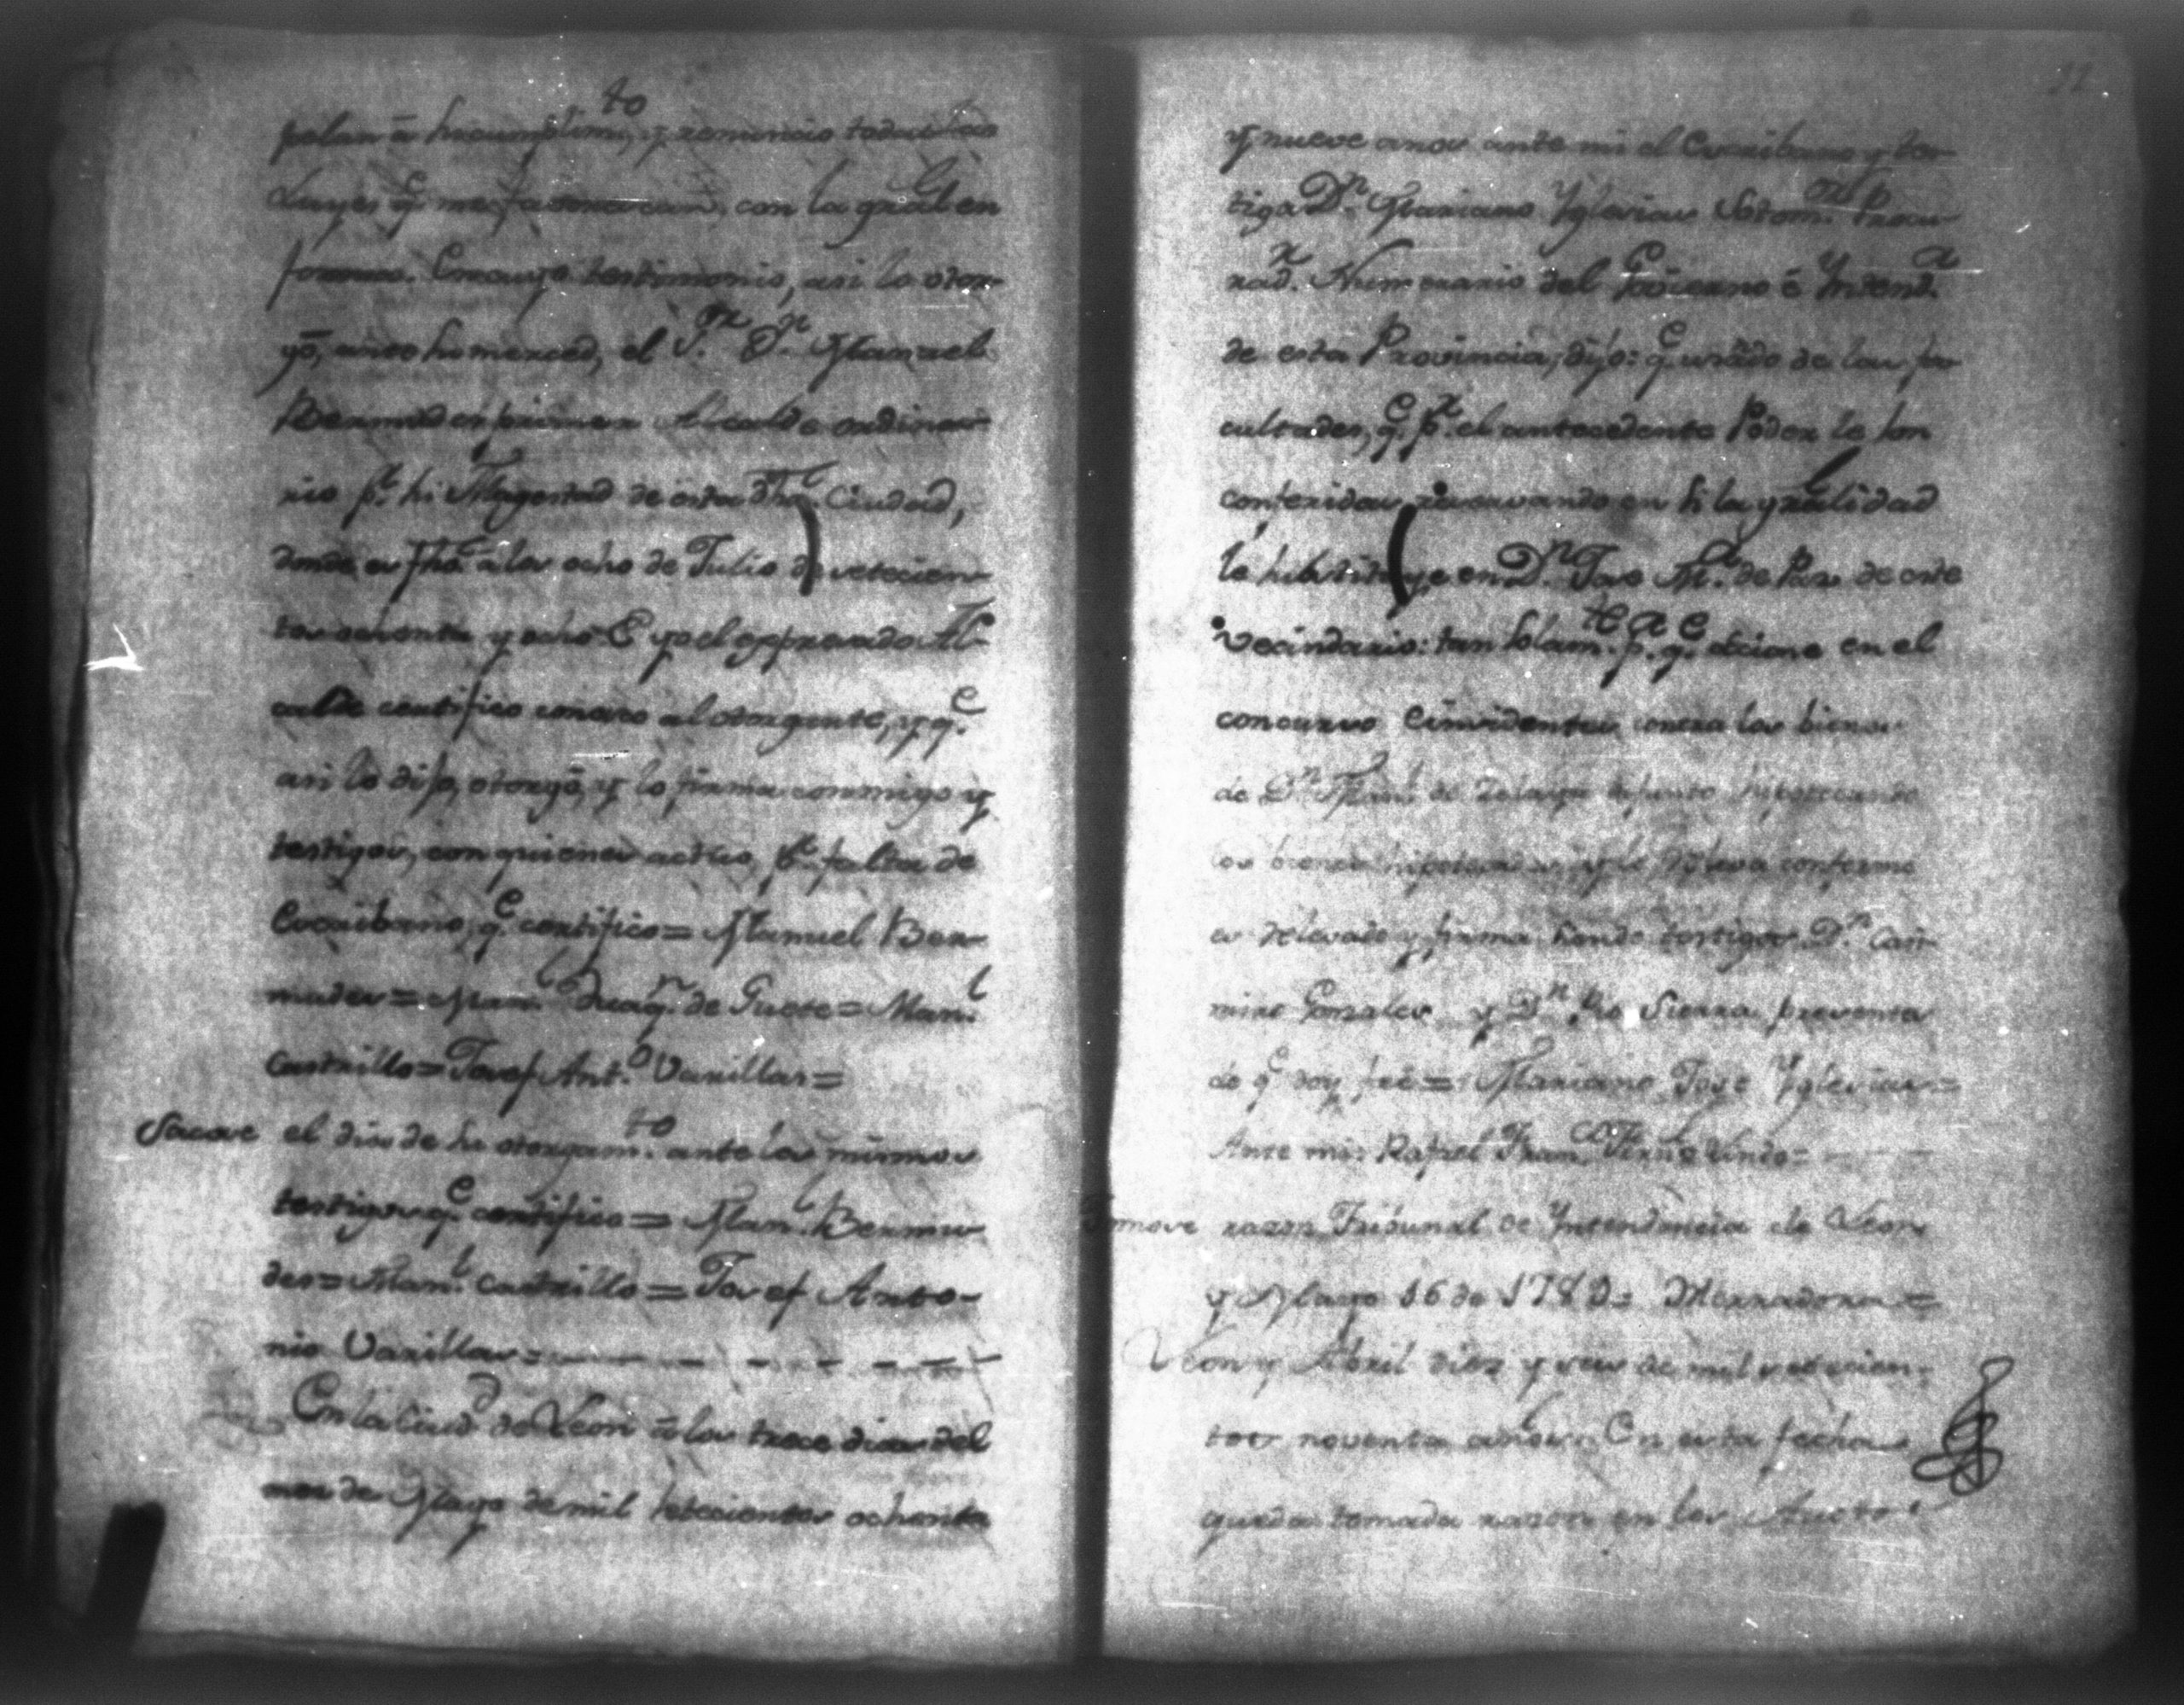 pelan â su cumplim.to, y renuncio todas las
Leyes q.e me favorezcan, con la gral en
forma. En cuyo testimonio, asi lo otor-
gó, ante su merced, el S.or D.n Manuel
Bermudes primer Alcalde ordina-
rio p.r su Magestad de esta dha Ciudad,
donde es fho â los ocho de Julio de setecien-
tos ochenta y ocho. E yo el expresado Al-
calde certifico conosco al otorgante, y q.e
asi lo dijo, otorgó, y lo firma conmigo y
testigos, con quienes actúo, p.r falta de
Escribano, q.e certifico = Manuel Ber-
mudes = Man.l de = Man.l
Castrillo = Josef Ant.o Varillas =
Sacose el dia de su otorgam.to ante los mismos
testigos q.e certifico = Man.l Bermu-
des = Man.l Castrillo = Josef Anto-
nio Varillas =
En la Ciud.d de Leon â los trece dias del
mes de Mayo de mil setecientos ochenta
11
y nueve anos ante mi el Escribano y tes-
tigos D.n Mariano Yglesias Procu-
rad.r Numerario del Govierno é Yntend.a
de esta Provincia, dijo: q.e usãdo de las fa-
cultades, q.e p.r el antecedente Poder le son
conferidas reservando en si la gralidad
le substituye en D.n Jose M.a de Paz de este
vecindario: tan solam.te p.a q.e accione en el
concurso é insidentes contra los bienes
de D.n Man.l de Zelaya difunto
los bienes y le releva conforme
es relevado y firma siendo testigos D.n Casi-
miro Gonzales y D.n Sierra presentes
de q.e doy feé = Mariano Jose Yglesias =
Ante mi: Rafael Fran.co
Tomose razon Tribunal de Yntendencia de Leon
y Mayo 16 de 1789 =
Leon y Abril diez y seis de mil setecien-
tos noventa años. En esta fecha
queda tomada razon en los Autos